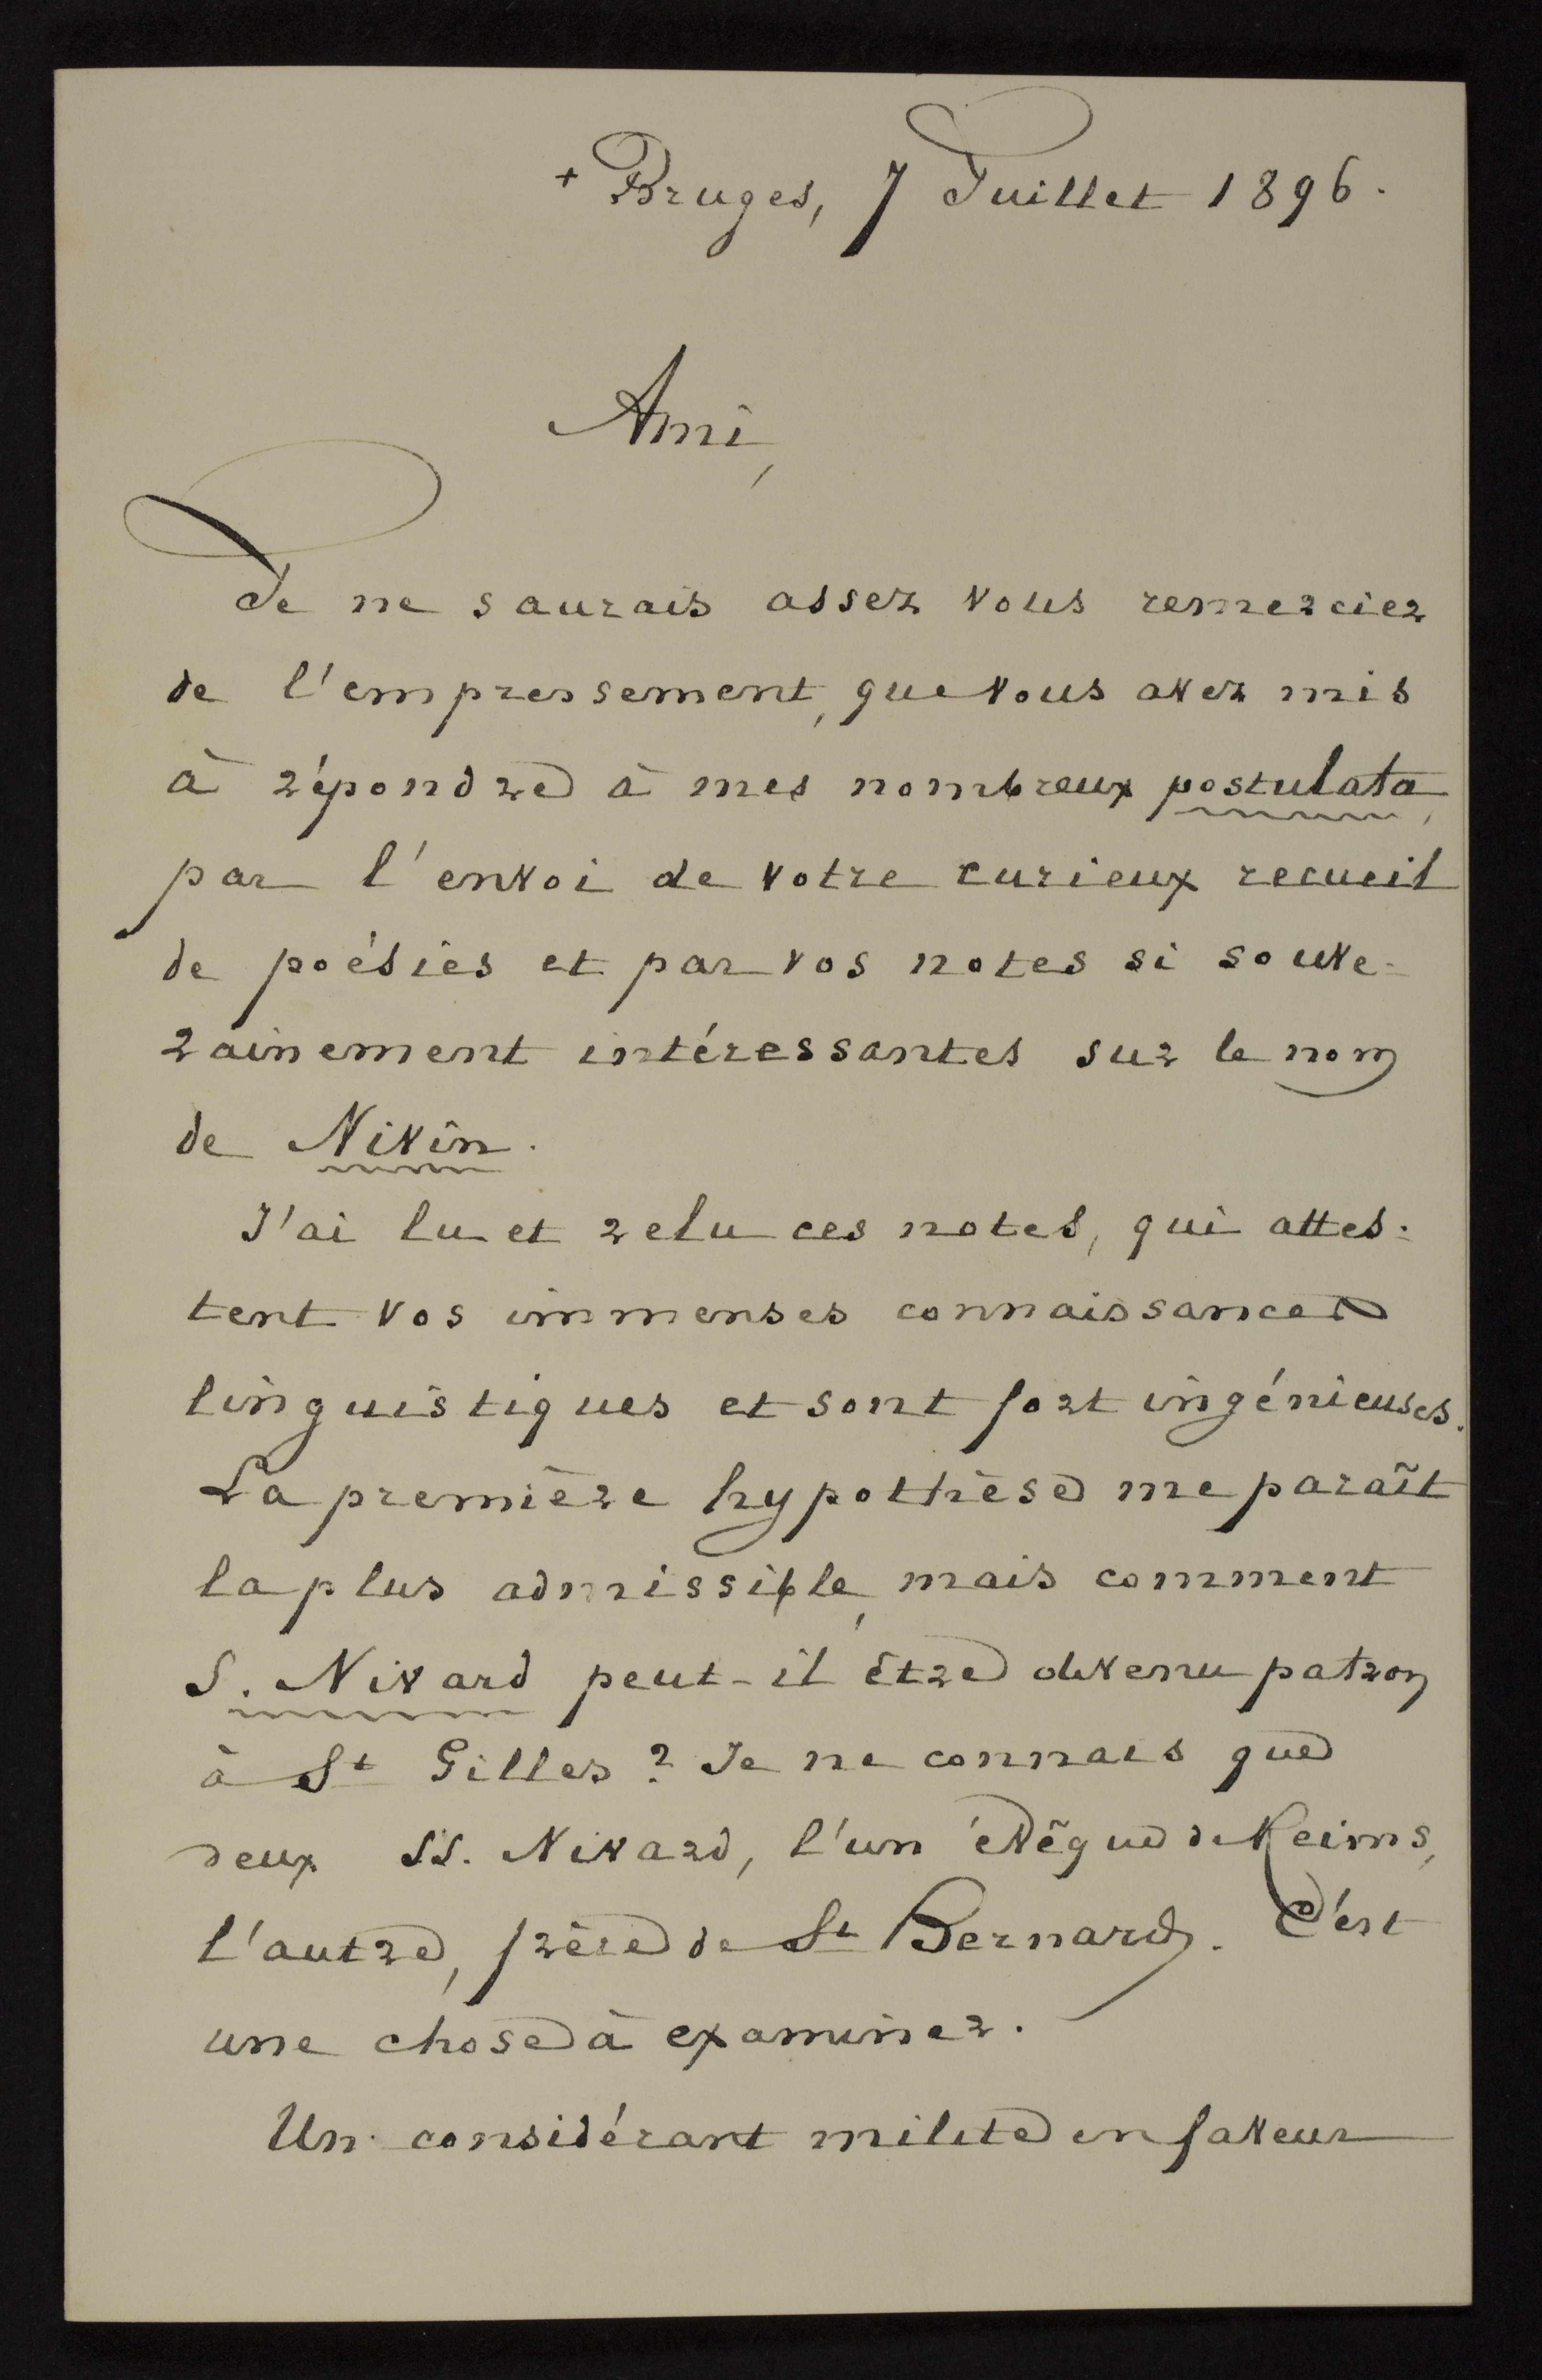 + Bruges, 7 Juillet 1896.
Ami,
Je ne saurais assez vous remercier
de l'empressement, que vous avez mis
à répondre à mes nombreux postulata,
par l'envoi de votre curieux recueil
de poésies et par vos notes si souve-
rainement intéressantes sur le nom
de Nivin.
J'ai lu et relu ces notes, qui attes-
tent vos immenses connaissances
linguistiques et sont fort ingénieuses.
La première hypothèse me paraît
la plus admissible, mais comment
S. Nivard peut-il être devenu patron
à St Gilles? Je ne connais que
deux SS. Nivard, l'un évêque de Reims,
l'autre, frère de St Bernard. C'est
une chose à examiner.
Un considérant milite en faveur